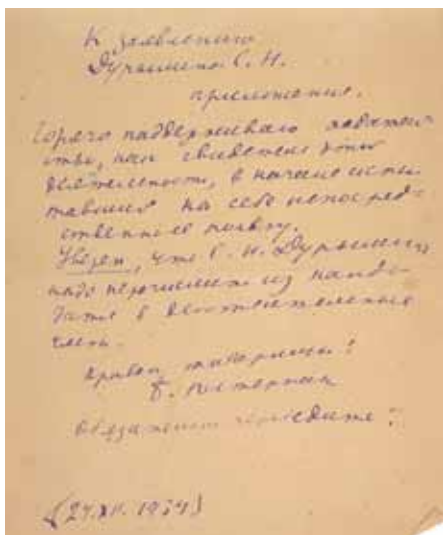 К заявлению
Дурылина С. Н.
приложение.
Горячо поддерживаю ходатай-
ство, как свидетель этой
деятельности, в начале испы-
тавший на себе непосред-
ственно её пользу.
Уверен, что С. Н. Дурылина
надо перечислить из канди-
датов в действительные
члены.
Привет товарищи!
Б. Пастернак
Обязательно переведите!
(24.XII. 1934)